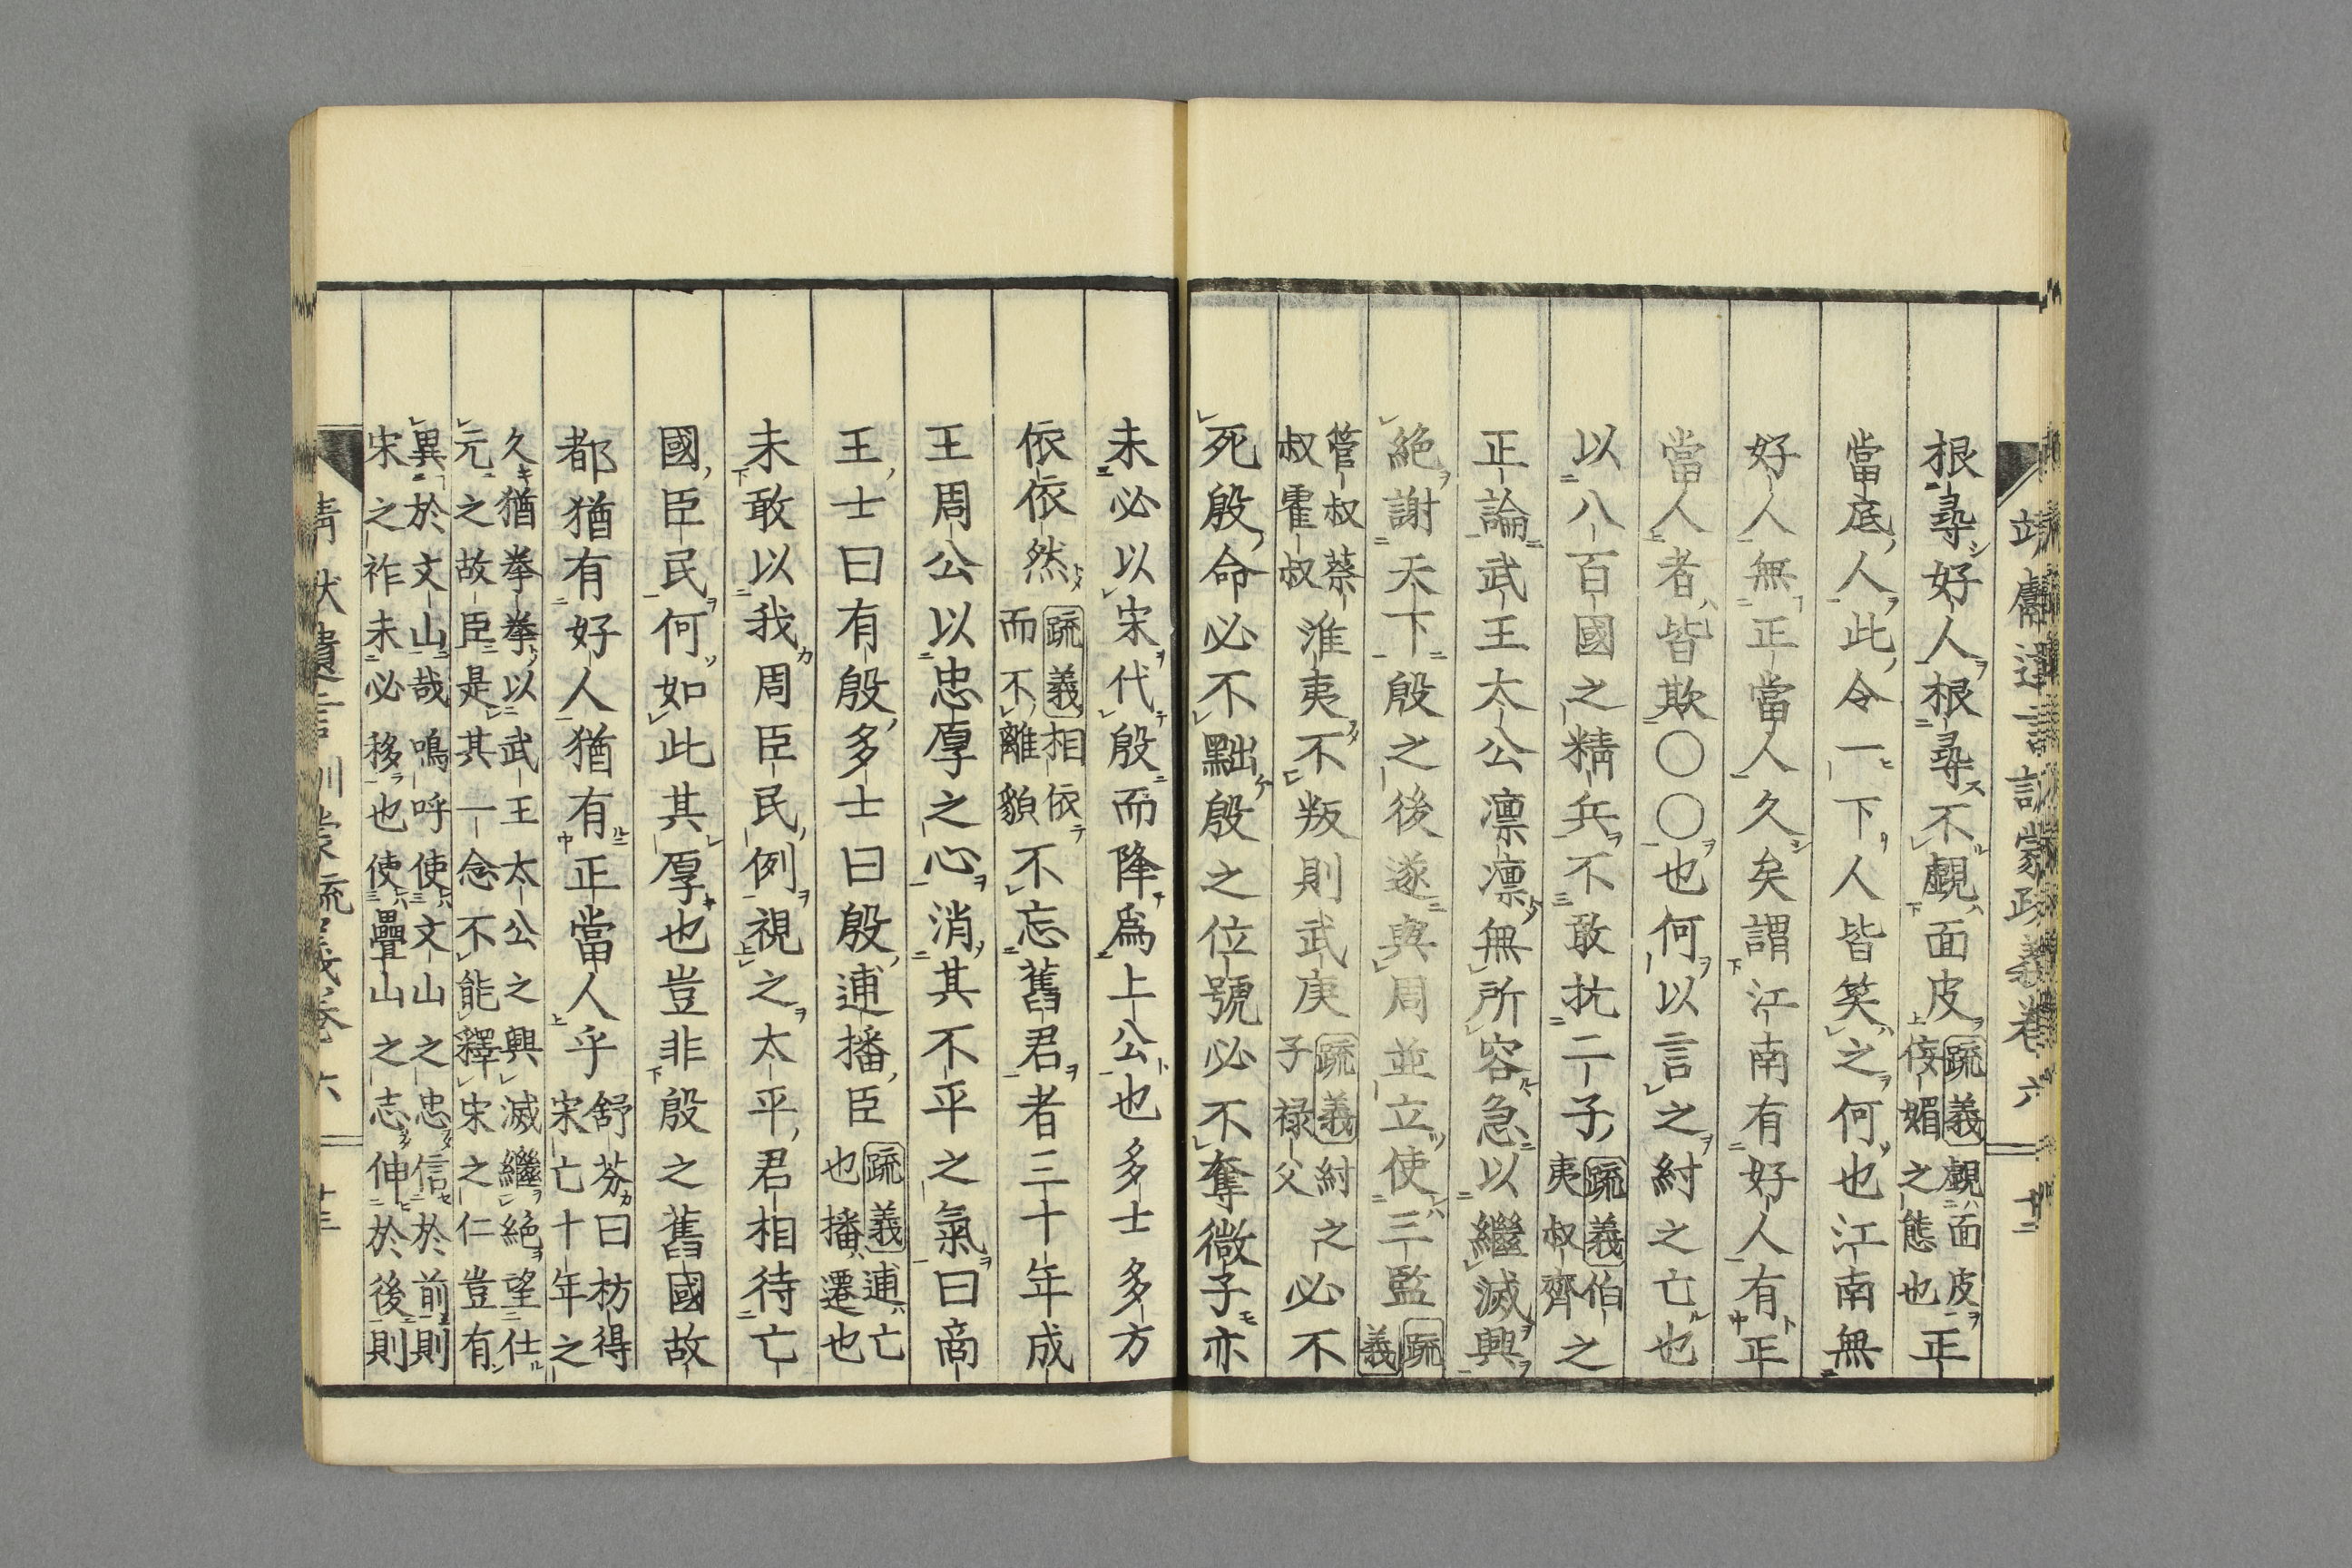 根尋好人根尋不覷面皮疏義覷面皮佞媚之態也正
當底人此令一下人皆笑之何也江南無
好人無正當人久矣謂江南有好人有正
當人者皆欺〇〇也何以言之紂之亡也
以八百國之精兵不敢抗二子疏義伯夷叔齊之
正論武王太公凛凛無所容急以繼滅興
絶謝天下殷之後遂與周並立使三監疏義
管叔蔡叔霍叔淮夷不叛則武庚疏義紂之子禄父必不
死殷命必不黜殷之位號必不奪微子亦
未必以宋代殷而降爲上公也多士多方
依依然疏義相依而不離貌不忘舊君者三十年成
王周公以忠厚之心消其不平之氣曰商
王士曰有殷多士曰殷逋播臣疏義逋亡也播遷也
未敢以我周臣民例視之太平君相待亡
國臣民何如此其厚也豈非殷之舊國故
都猶有好人猶有正當人乎舒芬曰枋得宋亡十年之
久猶拳拳以武王太公之興滅繼絶望仕
元之故臣是其一念不能釋宋之仁豈有
異於文山哉嗚呼使文山之忠信於前則
宋之祚未必移也使疊山之志伸於後則